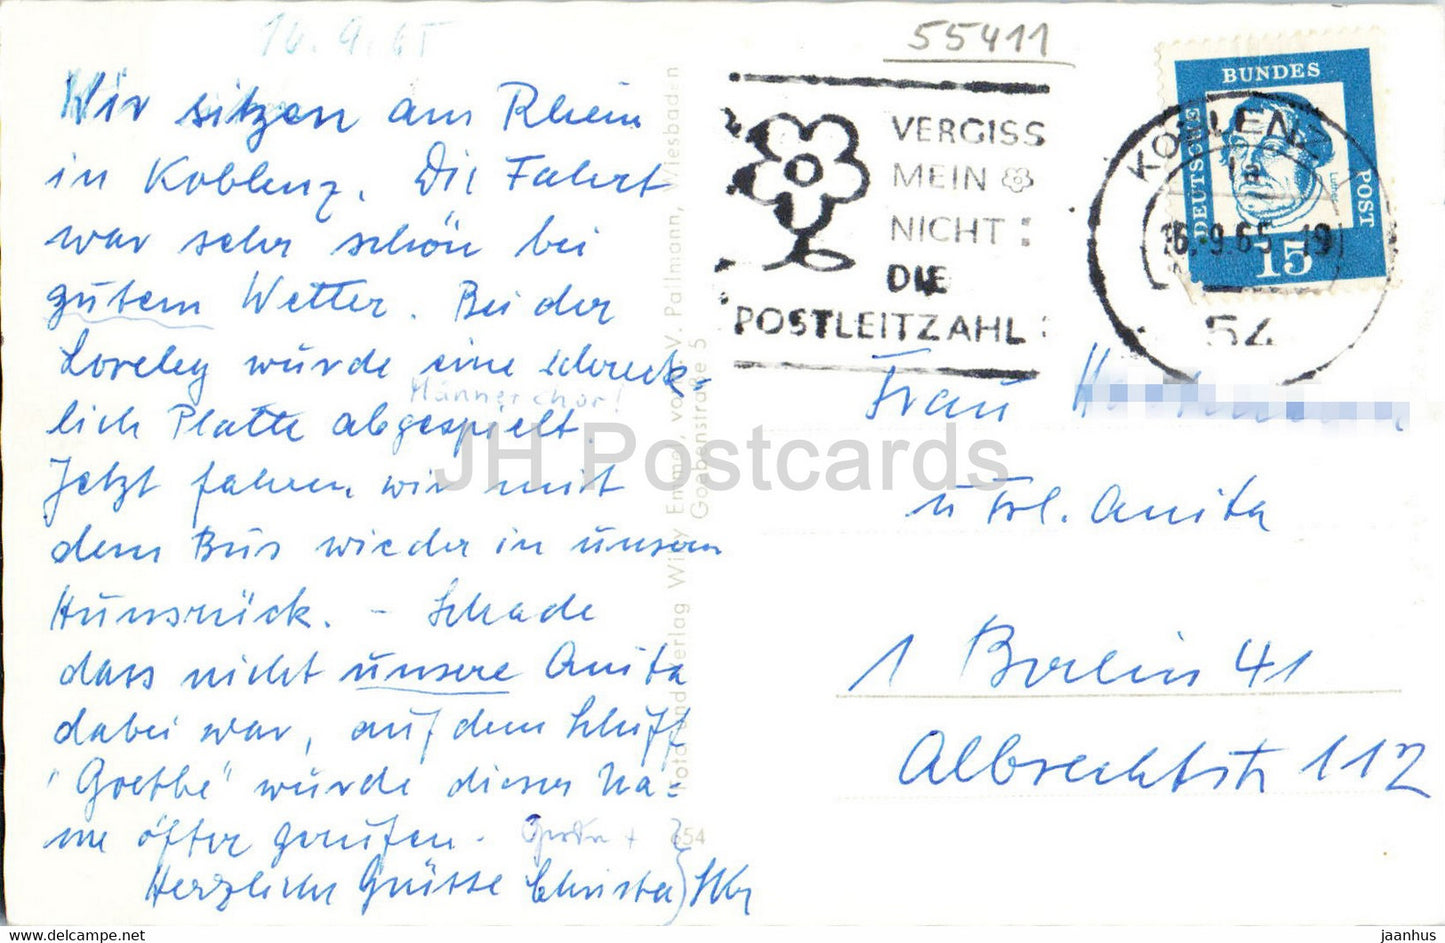 16.9.65
Wir sitzen am Rhein
in Koblenz. Die Fahrt
war sehr schön bei
gutem Wetter. Bei der
Loreley wurde eine schreck-
Männerchor!
lich Platte abgespielt.
Jetzt fahren wir mit
dem Bus wieder in unsern
Hunsrück. – Schade
dass nicht unsere Anita
dabei war, auf dem Schiff
"Goethe" wurde dieser Na-
me öfter gerufen.
Herzliche Grüsse Christa
Foto und Verlag Willy Emme, vorm. V. Pallmann, Wiesbaden
Goebenstraße 5
654
55411
VERGISS
MEIN
NICHT:
DIE
POSTLEITZAHL:
KOBLENZ
1a
16.-9.65-19
54
DEUTSCHE
BUNDES
POST
Luther
15
Frau
u Frl. Anita
1 Berlin 41
Albrechtstr 112
JH Postcards
jaanhus
www.hipmarket.com